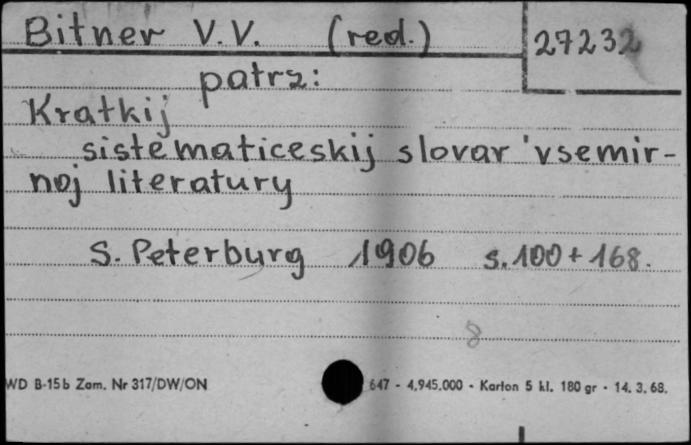 Bitner V.V. (red.) 27232
patrz:
Kratkij
sistematiceskij slovar' vsemir-
noj literatury
S. Peterburg 1906 s. 100 + 168.
8
WD B-15b Zam. Nr 317/DW/ON 647 - 4.945.000 - Karton 5 kl. 180 gr - 14. 3. 68.